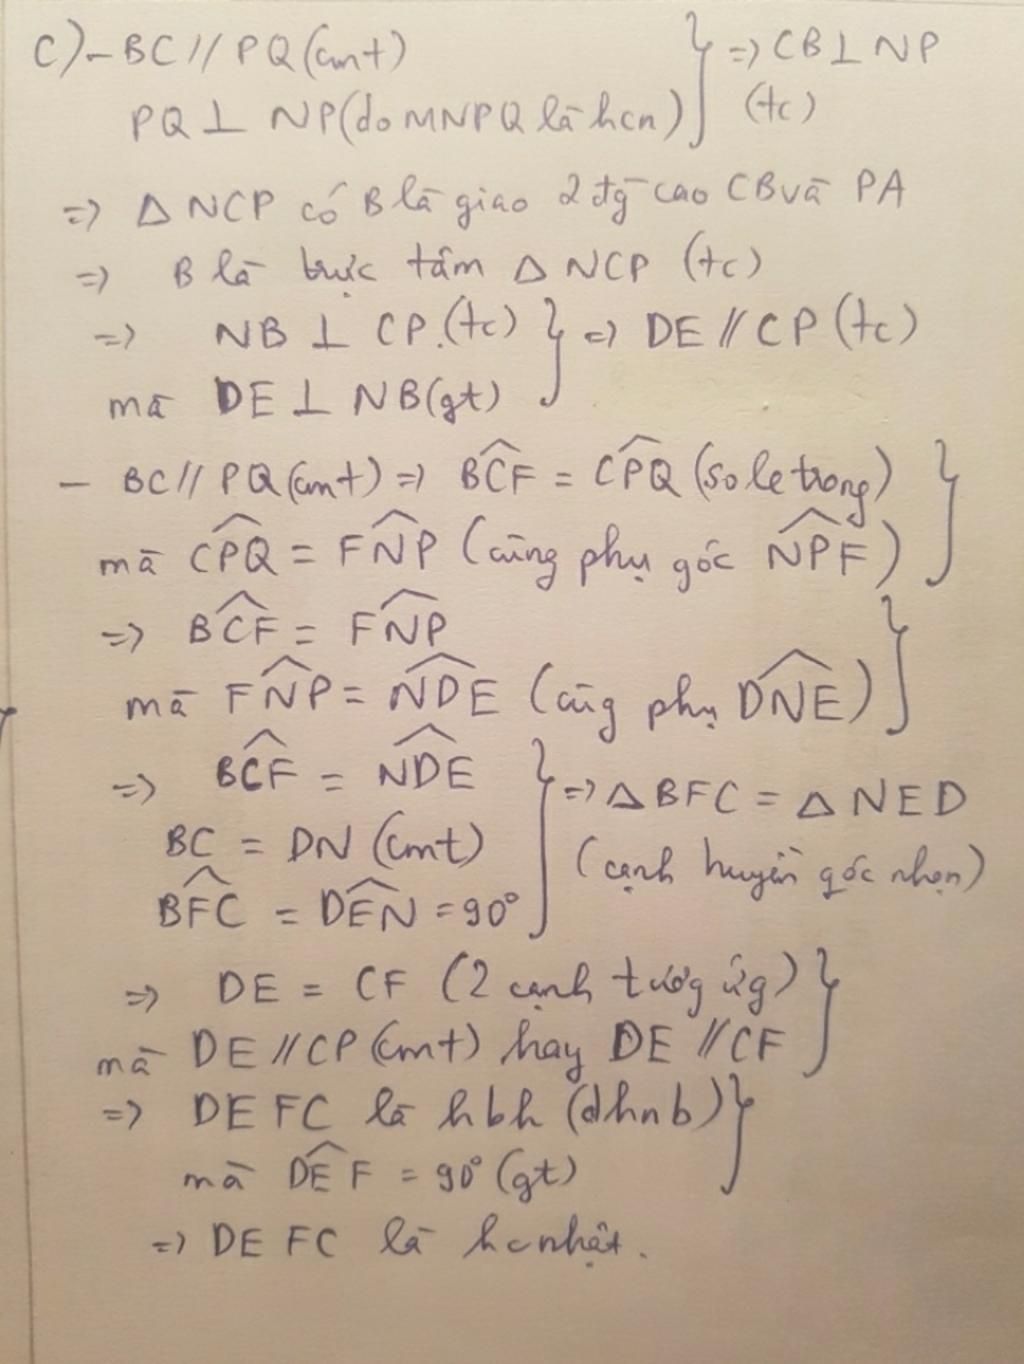 c) - BC // PQ (cmt) } => CB ⊥ NP
PQ ⊥ NP (do MNPQ là hcn) (tc)
=> Δ NCP có B là giao 2 đg cao CB và PA
=> B là trực tâm Δ NCP (tc)
=> NB ⊥ CP. (tc) } => DE // CP (tc)
mà DE ⊥ NB (gt)
- BC // PQ (cmt) => \widehat{BCF} = \widehat{CPQ} (so le trong) }
mà \widehat{CPQ} = \widehat{FNP} (cùng phụ góc \widehat{NPF})
=> \widehat{BCF} = \widehat{FNP} }
mà \widehat{FNP} = \widehat{NDE} (cùg phụ \widehat{DNE})
=> \widehat{BCF} = \widehat{NDE} } => Δ BFC = Δ NED
BC = DN (cmt) (cạnh huyền góc nhọn)
\widehat{BFC} = \widehat{DEN} = 90°
=> DE = CF (2 cạnh tươg ứg) }
mà DE // CP (cmt) hay DE // CF
=> DEFC là hbh (dhnb) }
mà \widehat{DEF} = 90° (gt)
=> DEFC là hc nhật.